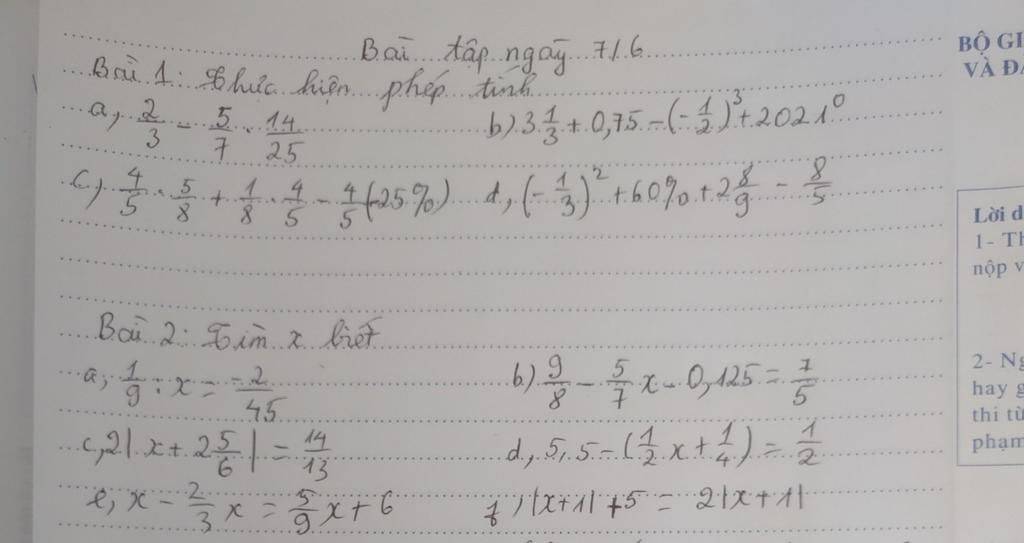 Bài tập ngày 7/6
Bài 1: Thực hiện phép tính
a, 2/3 - 5/7 . 14/25 b) 3 1/3 + 0,75 - (-1/2)^3 + 2021^0
c, 4/5 . 5/8 + 1/8 . 4/5 - 4/5 (-25%) d, (-1/3)^2 + 60% + 2 8/9 - 8/5
Bài 2: Tìm x biết
a, 1/9 : x = -2/45 b) 9/8 - 5/7 x - 0,125 = 7/5
c, 2| x + 2 5/6 | = 14/13 d, 5,5 - (1/2 x + 1/4) = 1/2
e, x - 2/3 x = 5/9 x + 6 f) |x+1| + 5 = 2|x+1|
BỘ GI
VÀ Đ
Lời d
1- Th
nộp v
2- Ng
hay g
thi từ
phạm